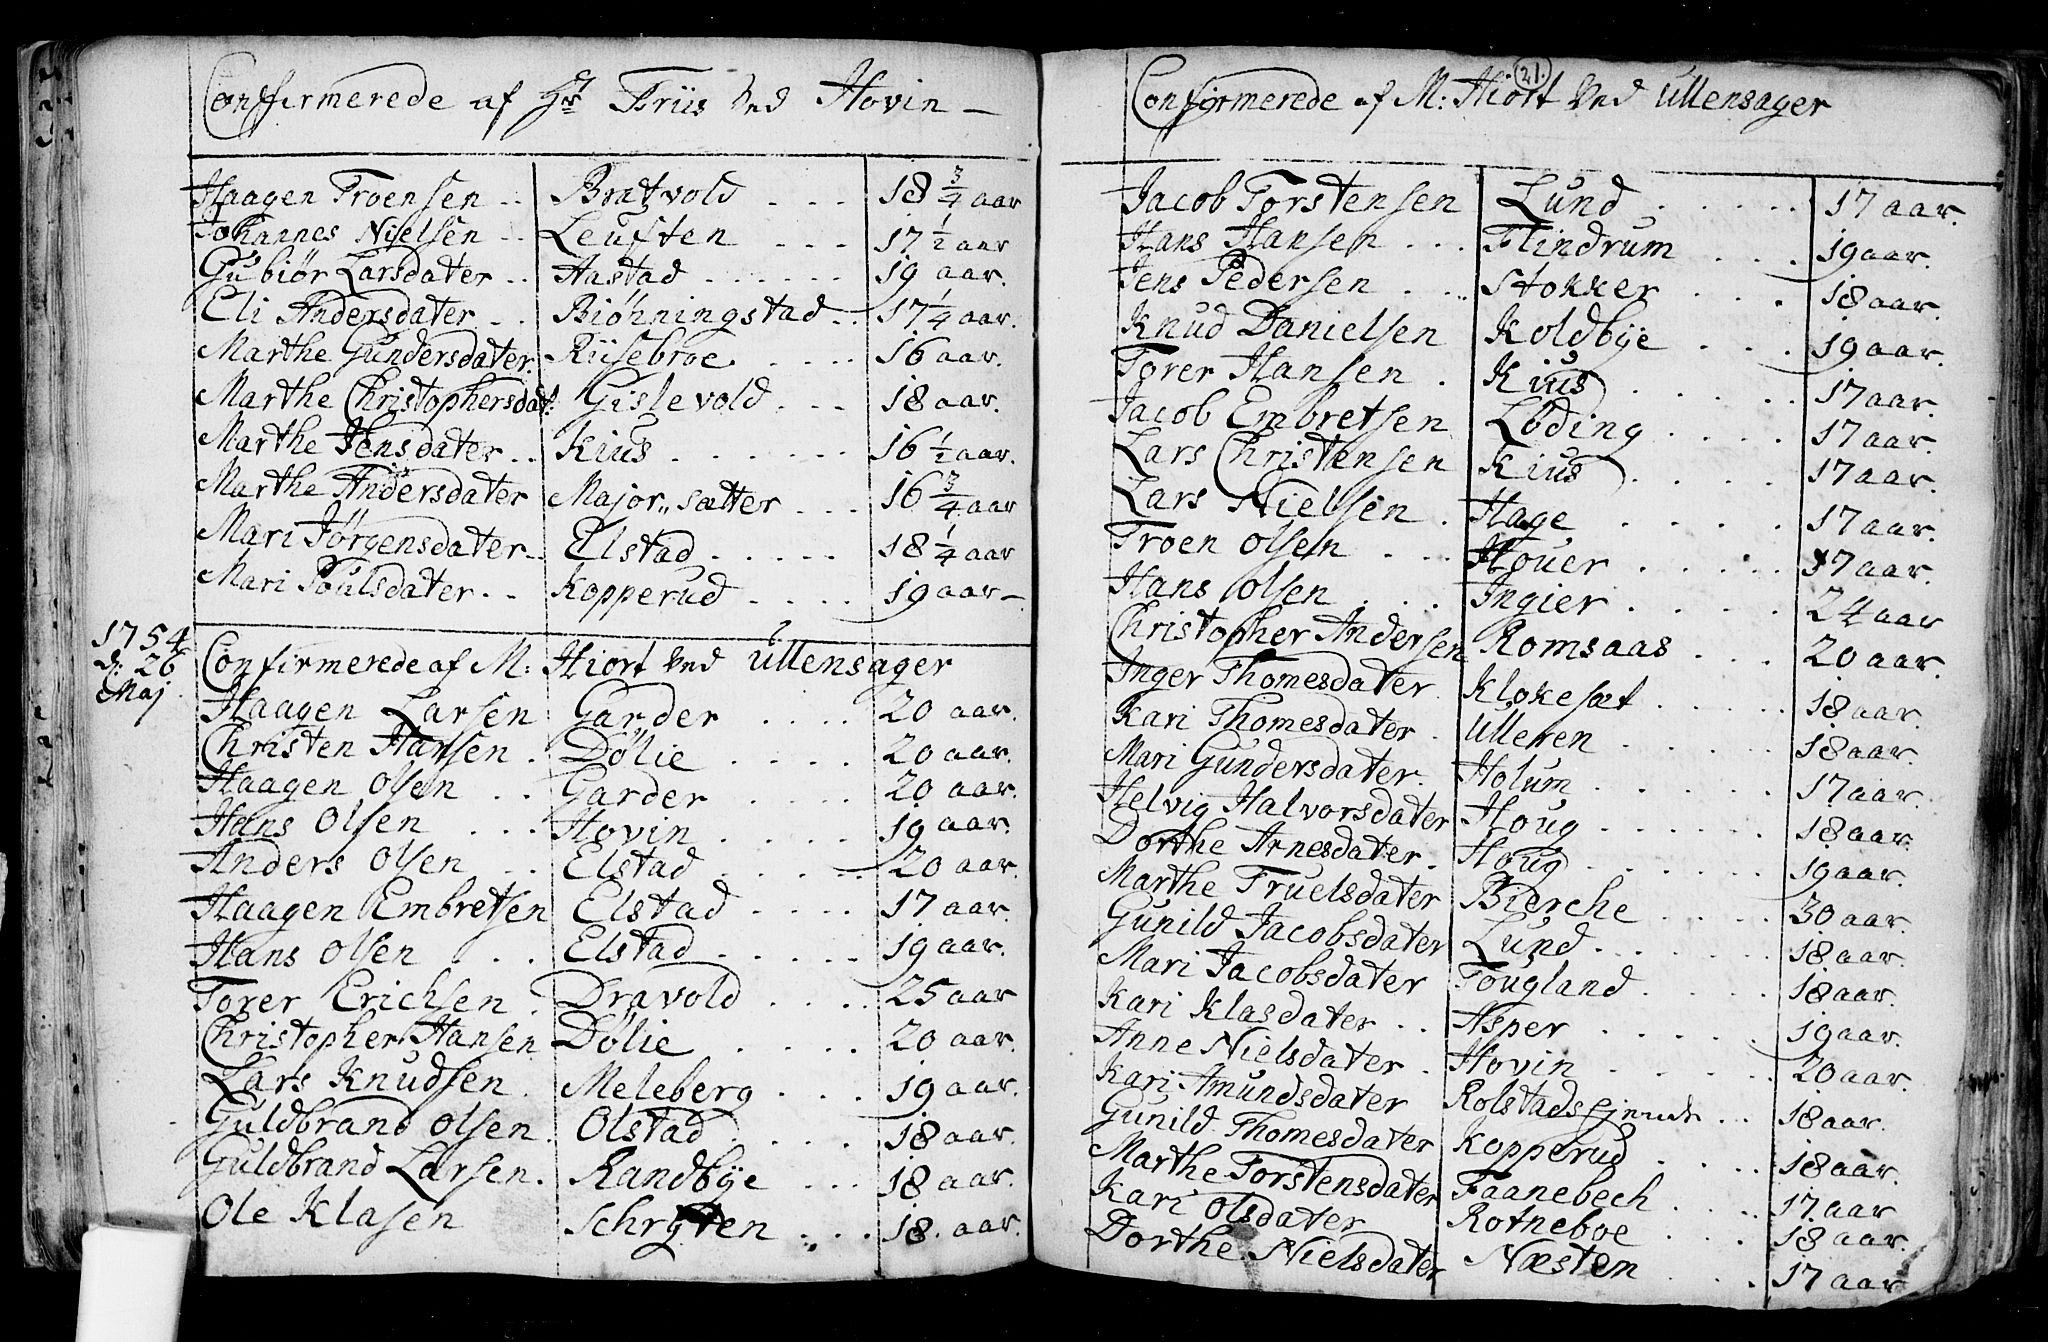 Confirmerede af Hr Friis ved Hovin
Haagen Troensen Bratvold 18 3/4 aar
Johannes Nielsen Leusten 17 1/2 aar
Gubiør Larsdater Aastad 19 aar.
Eli Andersdater Biøhningstad 17 1/4 aar.
Marthe Gundersdater. Riisebroe 16 aar.
Marthe Christophersdat: Gislevold 18 aar.
Marthe Jensdater Kius 16 1/2 aar.
Marthe Andersdater Major,, sætter 16 3/4 aar
Mari Jørgensdater Elstad 18 1/4 aar
Mari Poulsdater Kopperud 19 aar
1754
d: 26
Maj
Confirmerede af M: Hiort ved Ullensager
Haagen Larsen Garder 20 aar.
Christen Hansen Dølie 20 aar.
Haagen Olsen Garder 20 aar.
Hans Olsen Hovin 19 aar.
Anders Olsen Elstad 20 aar.
Haagen Embretsen Elstad 17 aar.
Hans Olsen Elstad 19 aar.
Torer Erichsen Dravold 25 aar
Christopher Hansen Dølie 20 aar.
Lars Knudsen Meleberg 19 aar.
Guldbrand Olsen Olstad 18 aar.
Guldbrand Larsen Randbÿe 18 aar.
Ole Klasen Schrÿten 18. aar.
21.
Confirmerede af M: Hiort ved Ullensager
Jacob Torstensen Lund 17 aar.
Hans Hansen Flindrum 19 aar.
Jens Pedersen Stokker 18 aar.
Knud Danielsen Koldbÿe 19 aar.
Torer Hansen Kius 17 aar.
Jacob Embretsen Løding 17 aar.
Lars Christensen Kius 17 aar.
Lars Nielsen Hage 17 aar.
Troen Olsen Houer 17 aar.
Hans Olsen Ingier 24 aar
Christopher Andersen Romsaas 20 aar.
Inger Thomesdater Klokesæt 18 aar.
Kari Thomesdater Ulleren 18 aar.
Mari Gundersdater Holum 17 aar.
Helvig Halvorsdater Houg 18 aar.
Dorthe Arnesdater Houg 19 aar.
Marthe Truelsdater Bierche 30 aar.
Gunild Jacobsdater Lund 18 aar.
Mari Jacobsdater Fougland 18 aar.
Kari Klasdater Asper 19 aar.
Anne Nielsdater Hovin 20 aar.
Kari Amundsdater 18 aar.
Gunild Thomesdater Kopperud 18 aar.
Marthe Torstensdater Faanebech 17 aar
Kari Olsdater Rotneboe 18 aar.
Dorthe Nielsdater Næsten 17 aar